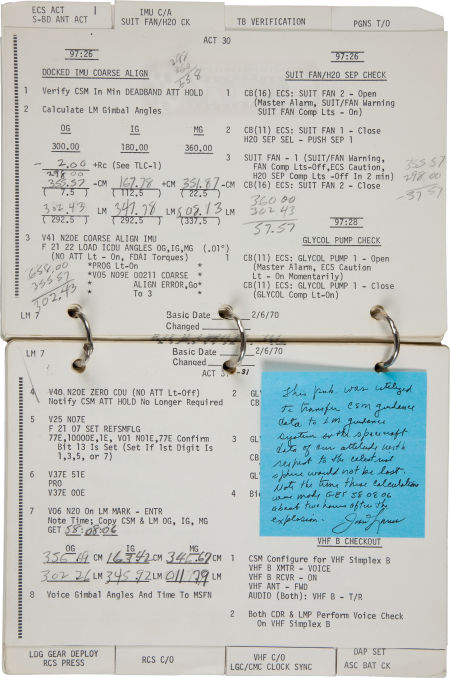 ECS ACT
S-BD ANT ACT
IMU C/A
SUIT FAN/H2O CK
TB VERIFICATION
PGNS T/O
ACT 30
97:26
DOCKED IMU COARSE ALIGN
1 Verify CSM In Min DEADBAND ATT HOLD
2 Calculate LM Gimbal Angles
OG IG MG
300.00 180.00 360.00
- 2.00 +Rc (See TLC-1)
298.00
355.57 -CM 167.78 +CM 351.87 -CM
(7.5) (112.5) (22.5)
302.43 LM 347.78 LM 008.13 LM
(292.5) (292.5) (337.5)
3 V41 N20E COARSE ALIGN IMU
F 21 22 LOAD ICDU ANGLES OG,IG,MG (.01°)
(NO ATT Lt - On, FDAI Torques)
*PROG Lt-On *
*V05 N09E 00211 COARSE *
* ALIGN ERROR,Go*
* To 3 *
658.00
355.57
302.43
LM 7
Basic Date 2/6/70
Changed
97:26
SUIT FAN/H2O SEP CHECK
1 CB(16) ECS: SUIT FAN 2 - Open
(Master Alarm, SUIT/FAN Warning
SUIT FAN Comp Lts - On)
2 CB(11) ECS: SUIT FAN 1 - Close
H2O SEP SEL - PUSH SEP 1
3 SUIT FAN - 1 (SUIT/FAN Warning,
FAN Comp Lts-Off,ECS Caution,
H2O SEP Comp Lts -Off In 2 min)
CB(16) ECS: SUIT FAN 2 - Close
355.57
298.00
57.57
360.00
302.43
57.57
97:28
GLYCOL PUMP CHECK
1 CB(11) ECS: GLYCOL PUMP 1 - Open
(Master Alarm, ECS Caution
Lt - On Momentarily)
CB(11) ECS: GLYCOL PUMP 1 - Close
(GLYCOL Comp Lt-On)
LM 7
Basic Date 2/6/70
Changed
ACT 31
4 V40 N20E ZERO CDU (NO ATT Lt-Off)
Notify CSM ATT HOLD No Longer Required
5 V25 N07E
F 21 07 SET REFSMFLG
77E,10000E,1E, V01 N01E,77E Confirm
Bit 13 Is Set (Set If 1st Digit Is
1,3,5, or 7)
6 V37E 51E
PRO
V37E 00E
7 V06 N20 On LM MARK - ENTR
Note Time; Copy CSM & LM OG, IG, MG
GET 58:08:06
OG IG MG
356.69 CM 163.42 CM 346.67 CM
302.26 LM 345.92 LM 011.79 LM
8 Voice Gimbal Angles And Time To MSFN
2
3
4
This pub. was utilized
to transfer CSM guidance
data to LM guidance
system so the spacecraft
data of our attitude with
respect to the celestial
sphere would not be lost.
Note the time these calculations
was made GET 58 08 06
about two hours after the
explosion.
VHF B CHECKOUT
1 CSM Configure for VHF Simplex B
VHF B XMTR - VOICE
VHF B RCVR - ON
VHF ANT - FWD
AUDIO (Both): VHF B - T/R
2 Both CDR & LMP Perform Voice Check
On VHF Simplex B
LDG GEAR DEPLOY
RCS PRESS
RCS C/O
VHF C/O
LGC/CMC CLOCK SYNC
DAP SET
ASC BAT CK